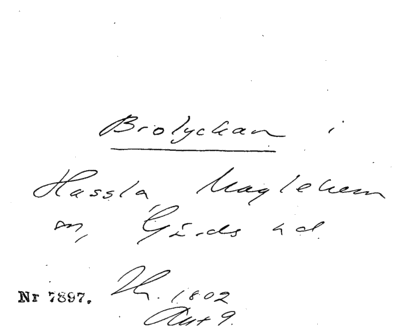 Brolyckan i
Hassla, Maglehem
sn, Gärds hd.
Nr 7897. Th. 1802
Aut 9.